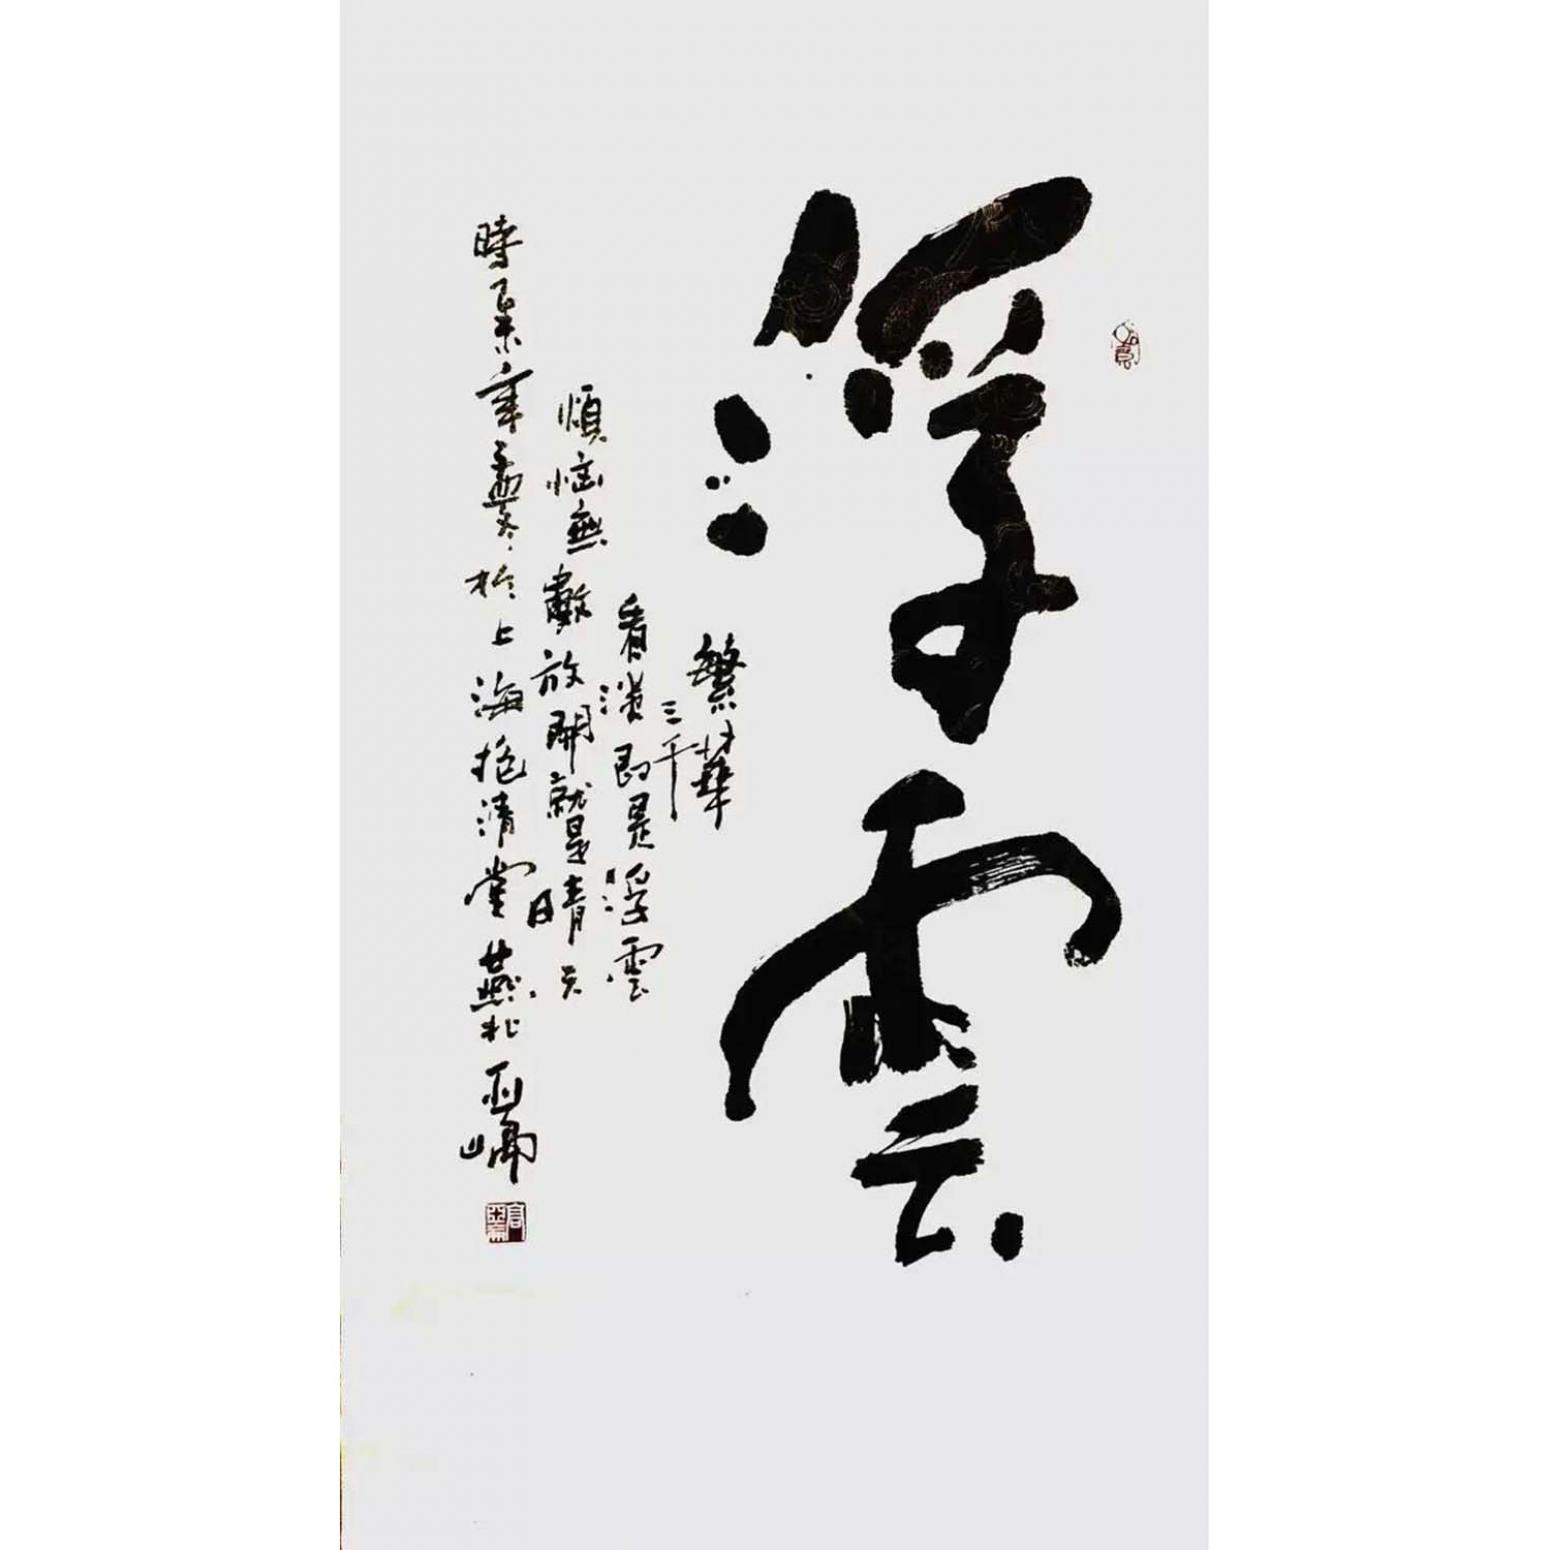 浮雲
繁華
三千
看淡即是浮雲
煩惱無數放開就是晴天
時在辛丑孟冬於上海抱清堂燕北